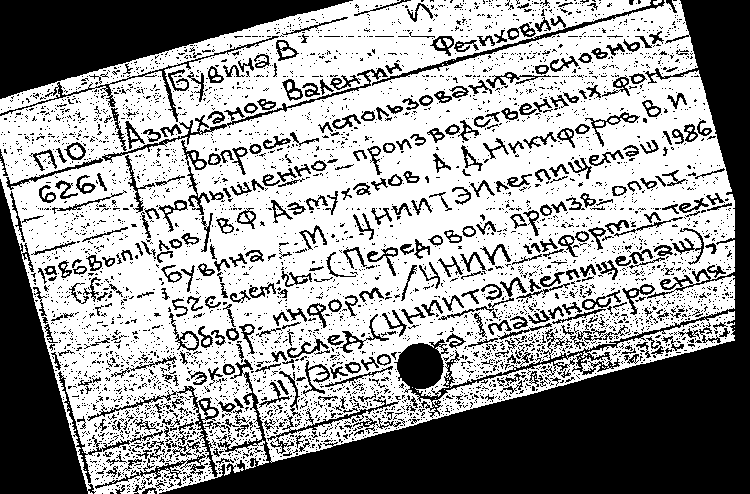 Бувина, В И
Азтуханов, Валентин Фетихович
П10
6261
Вопросы использования основных
промышленно- производственных фон-
дов / В.Ф. Азтуханов, А.Д. Никифоров, В.И.
1986 Вып.11
Бувина. - М.: ЦНИИТЭИлегпищемаш, 1986.
52 с. схем; - (Передовой произв. опыт:
Обзор. информ. / ЦНИИ информ. и техн.-
экон. исслед. (ЦНИИТЭИлегпищемаш);
Вып. 11)- машиностроения